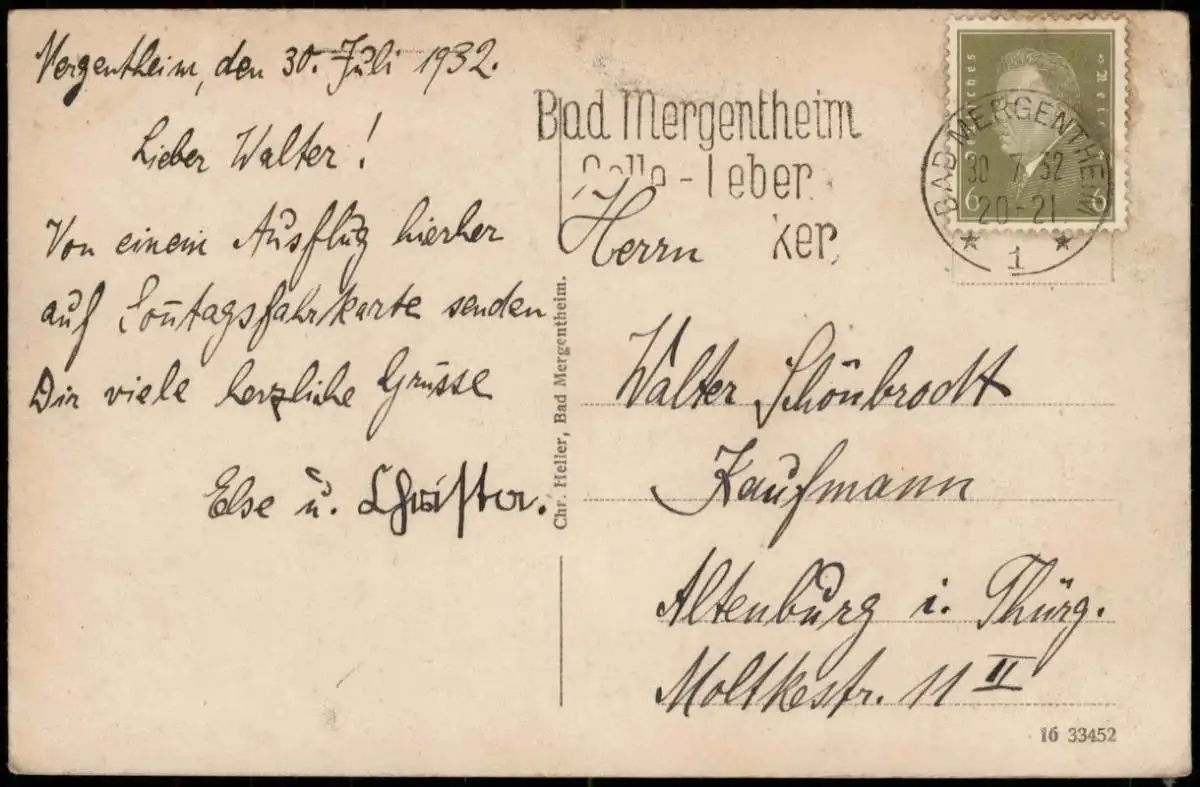 Mergentheim, den 30. Juli 1932.
Lieber Walter!
Von einem Ausflug hierher
auf Soñtagsfahrkarte senden
Dir viele herzliche Grüsse
Else u.
Bad Mergentheim
-Leber
ker
BAD MERGENTHEIM
30 7 32
20-21
1
6 6
Herrn
Walter Schönbrodt
Kaufmann
Altenburg i. Thürg.
Moltkestr. 11 II
Chr. Heller, Bad Mergentheim.
16 33452